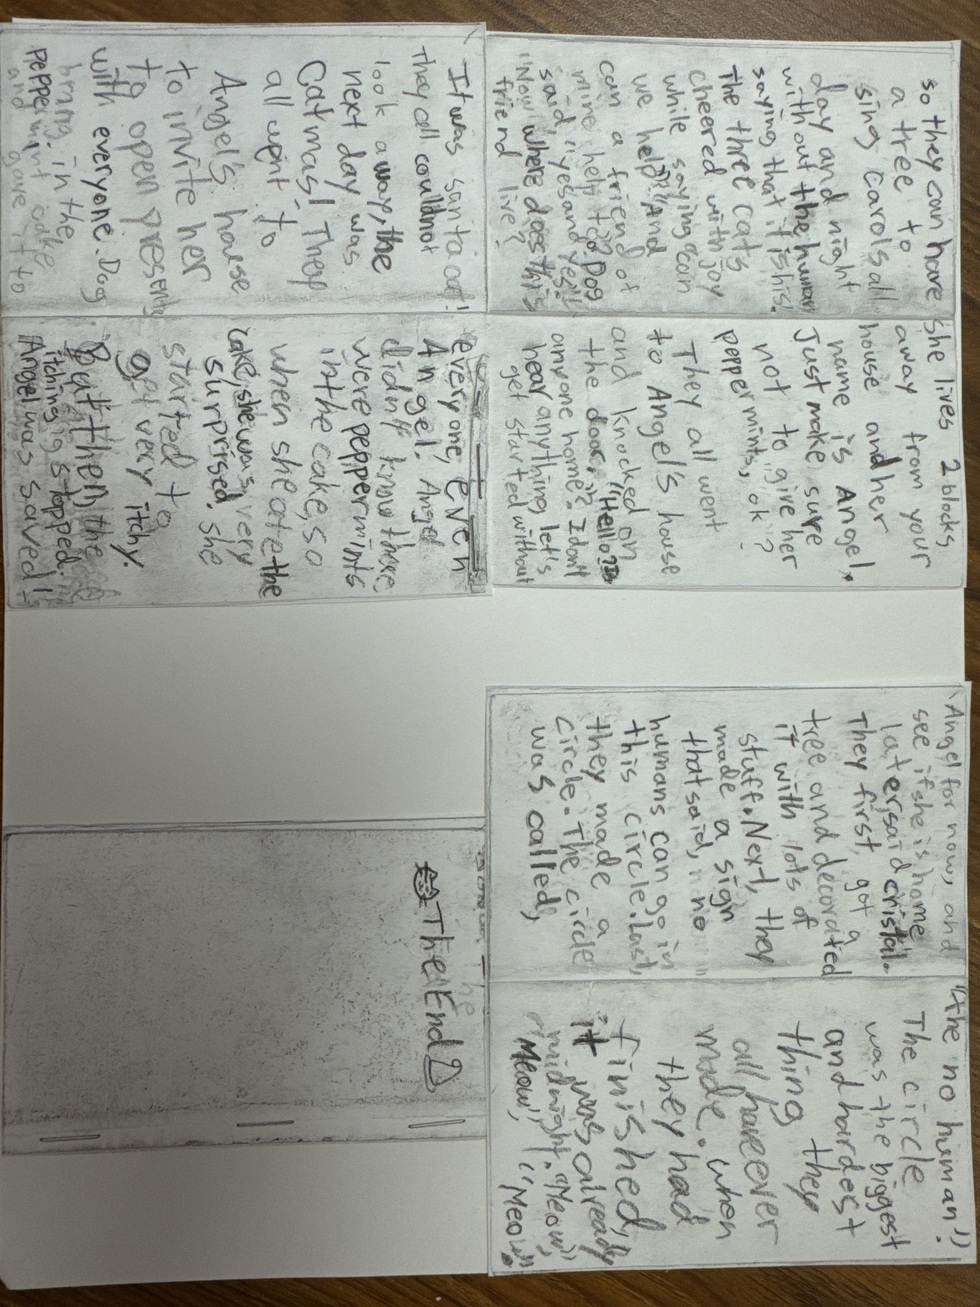 so they can have
a tree to
sing carols all
day and night
with out the human
saying that fishis!
The three cats
cheered with joy
while saying can
we help?" And
can a friend of
mine help to? Dog
said, "yes and yes!"
"Now where does this
friend live?"
she lives 2 blocks
away from your
house and her
name is Angel,
Just make sure
not to give her
peppermints, ok?
They all went
to Angel's house
and knocked on
the door. "Hello? Is
anyone home? I don't
hear anything, let's
get started without
Angel for now, and
see if she is home
later, said cristal.
They first, got a
tree and decorated
it with lots of
stuff. Next, they
made a sign
that said, no
humans can go in
this circle. Last,
they made a
circle. The circle
was called,
"the no human!"
The circle
was the biggest
and hardest
thing they
all have ever
made. when
they had
finished,
it was already
midnight. "Meow,"
"Meow," "Meow."
It was santa cat!
They all could not
look away, the
next day was
Catmas! They
all went to
Angel's house
to invite her
to open presents
with everyone. Dog
bring in the
peppermint cake
and gave it to
everyone, even
Angel. Angel
didn't know there
were peppermints
in the cake, so
when she ate the
cake, she was very
surprised. she
started to
get very itchy.
But then, the
itching stopped.
Angel was saved!
The End